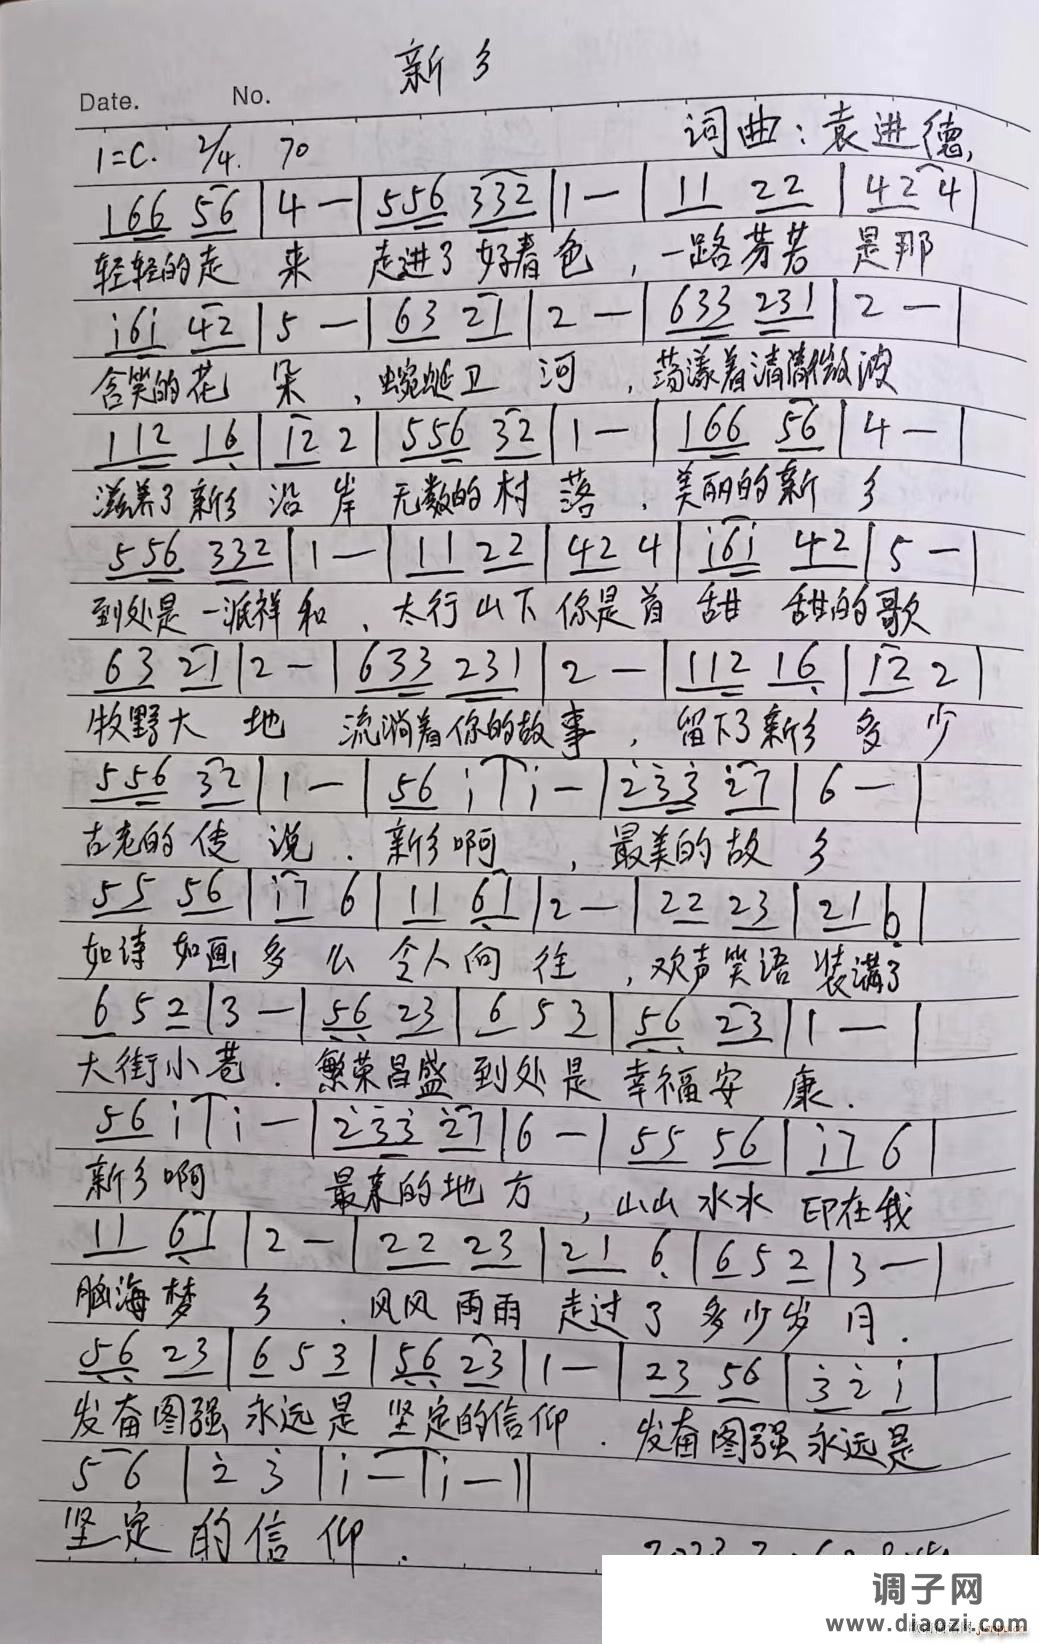 新乡
Date. No.
1=C. 2/4. 70 词曲：袁进德
166 56 | 4 — | 556 332 | 1 — | 11 22 | 42 4 |
轻轻的走 来 走进了好春色，一路芬芳 是那
i6i 42 | 5 — | 63 21 | 2 — | 633 231 | 2 — |
含笑的花 朵，蜿蜒卫 河，荡漾着清澈微波
112 16 | 12 2 | 556 32 | 1 — | 166 56 | 4 — |
滋养了新乡 沿 岸 无数的村 落，美丽的新 乡
556 332 | 1 — | 11 22 | 42 4 | i6i 42 | 5 — |
到处是一派祥和，太行山下你是首 甜 甜的歌
63 21 | 2 — | 633 231 | 2 — | 112 16 | 12 2 |
牧野大 地 流淌着你的故事，留下了新乡 多 少
556 32 | 1 — | 56 i | i — | 233 27 | 6 — |
古老的传 说．新乡啊，最美的故 乡
55 56 | i7 6 | 11 61 | 2 — | 22 23 | 21 6 |
如诗 如画 多 么 令人向 往，欢声笑语 装满了
6 5 2 | 3 — | 56 23 | 6 5 3 | 56 23 | 1 — |
大街小巷．繁荣昌盛 到处是 幸福安 康．
56 i | i — | 233 27 | 6 — | 55 56 | i7 6 |
新乡啊 最亲的地 方，山山水水 印在我
11 61 | 2 — | 22 23 | 21 6 | 6 5 2 | 3 — |
脑海梦 乡．风风雨雨 走过了 多少岁 月．
56 23 | 6 5 3 | 56 23 | 1 — | 23 56 | 3 2 i |
发奋图强 永远是 坚定的信仰．发奋图强永远是
5 6 | 2 3 | i — | i — ||
坚定 的信 仰．
调子网
www.diaozi.com